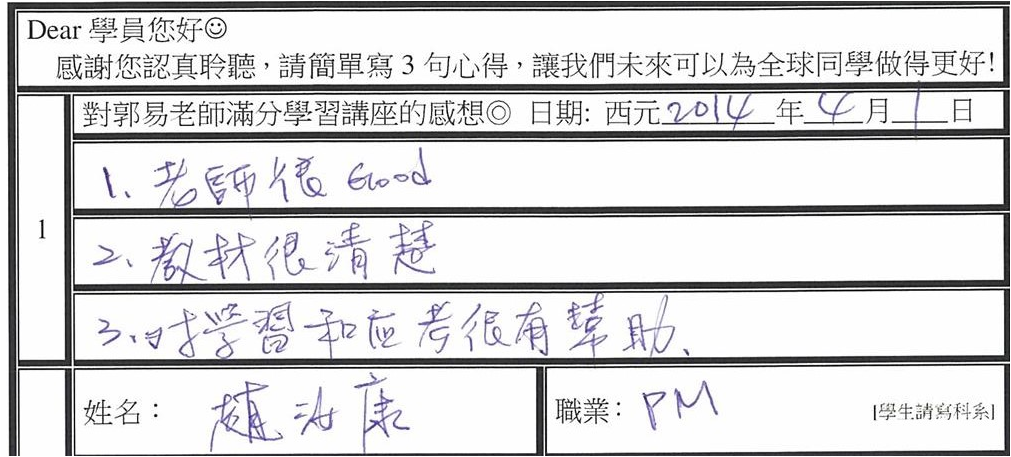 Dear 學員您好☺
感謝您認真聆聽，請簡單寫 3 句心得，讓我們未來可以為全球同學做得更好!
1
對郭易老師滿分學習講座的感想◎ 日期: 西元2014年4月1日
1. 老師很 Good
2、教材很清楚
3、对學習和应考很有幫助、
姓名： 趙汝康
職業： PM [學生請寫科系]